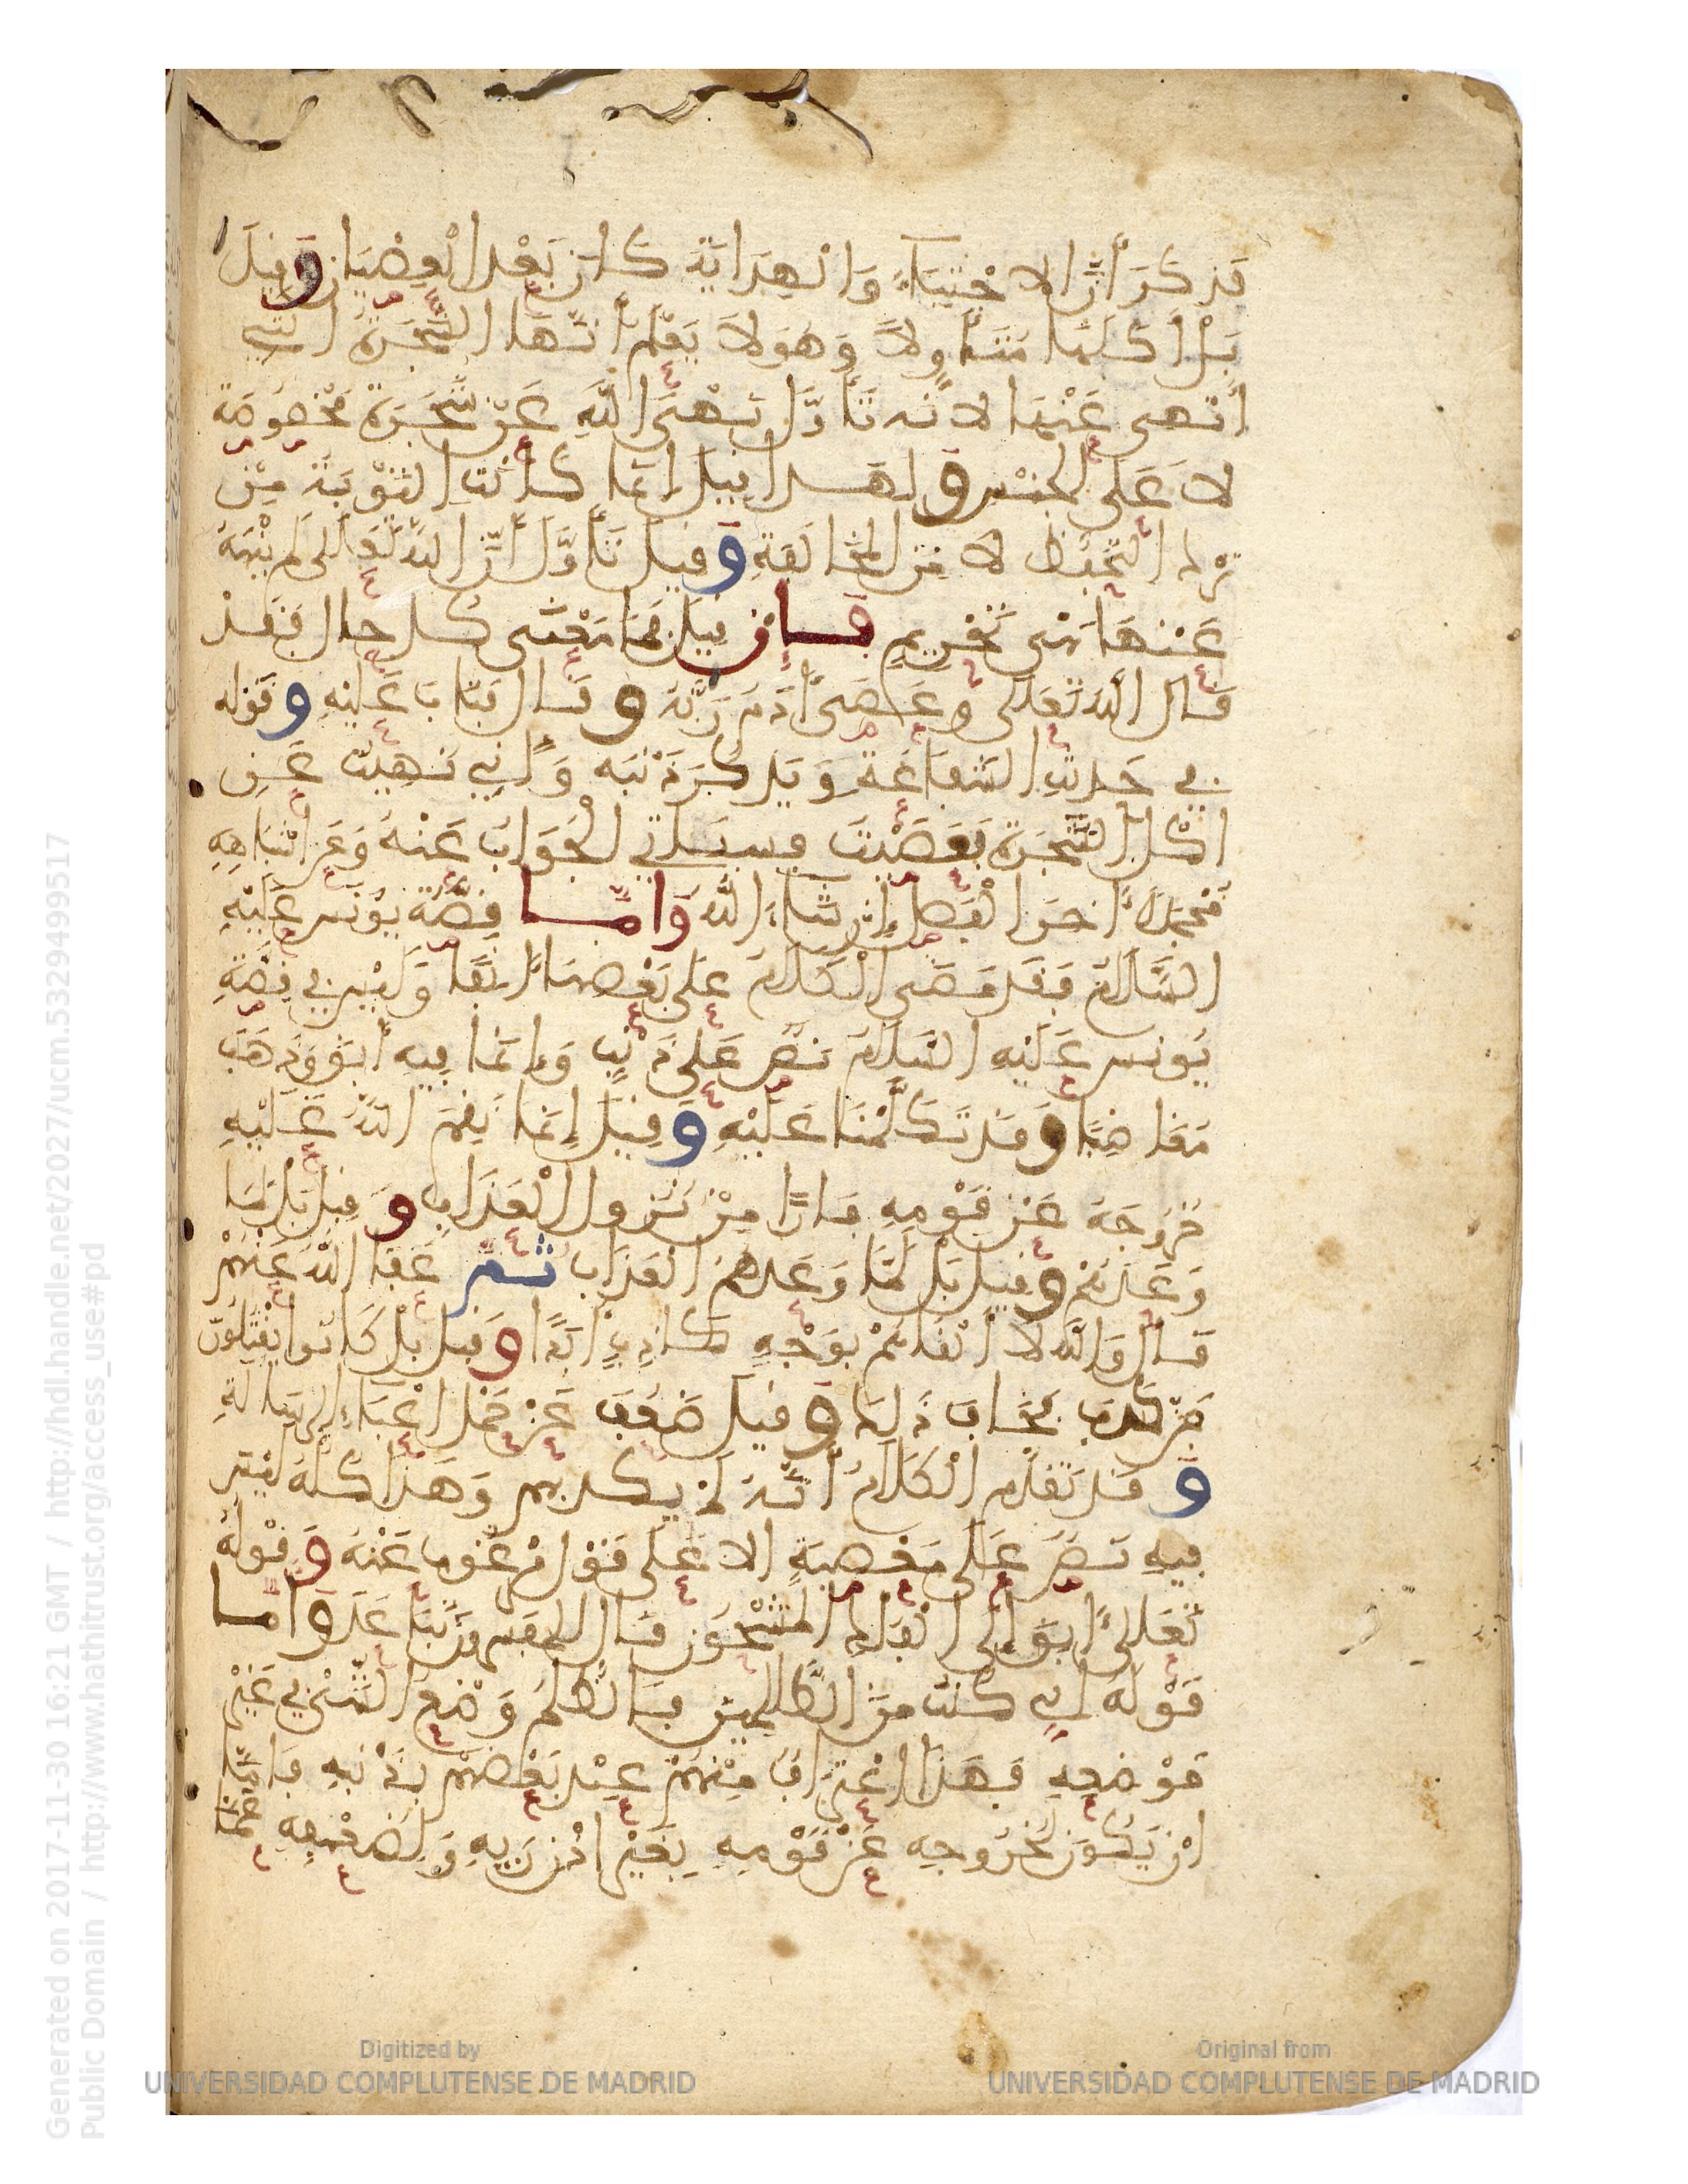 فذكر أن الاجتباء والهداية كان بعد العصيان وقيل
بل أكلها متأولا وهو لا يعلم أنها الشجرة التي
أنهى عنها لأنه تأول نهى الله عن شجرة مخصوصة
لا على الجنس ولهذا قيل إنما كانت التوبة من
ترك التحفظ لا من المخالفة وقيل تأول أن الله تعالى لم ينهه
عنها نهي تحريم فإن قيل فما معنى كل حال فقد
قال الله تعالى وعصى ءادم ربه وقال فتاب عليه وقوله
في حديث الشفاعة ويذكر ذنبه وإني نهيت عن
اكل الشجرة فعصيت فسيأتي الجواب عنه وعن اشباهه
مجملا ءاخر الفصل إن شاء الله وأما قصة يونس عليه
السلام فقد مضى الكلام على بعضها ءانفا وليس في قصة
يونس عليه السلام نص على ذنب وإنما فيه أبق وذهب
مغاضبا وقد تكلمنا عليه وقيل إنما نقم الله عليه
خروجه عن قومه فارا من نزول العذاب وقيل بل لما
وعدهم وقيل بل لما وعدهم العذاب ثم عفا الله عنهم
قال والله لا ألقاهم بوجه كاذب أبدا وقيل بل كانوا يقتلون
من كذب فخاف ذلك وقيل ضعف عن حمل اعباء الرسالة
وقد تقدم الكلام أنه لم يكذبهم وهذا كله ليس
فيه نص على معصية الا على قول مرغوب عنه وقوله
تعالى ءابق إلى الفلك المشحون قال المفسرون تباعد وأما
قوله إني كنت من الظالمين فالظلم وضع الشئ في غير
موضعه فهذا اعتراف منهم عند بعضهم بذنبه فإما
ان يكون لخروجه عن قومه بغير إذن ربه ولضعفه عما
Digitized by
UNIVERSIDAD COMPLUTENSE DE MADRID
Original from
UNIVERSIDAD COMPLUTENSE DE MADRID
Generated on 2017-11-30 16:21 GMT / http://hdl.handle.net/2027/ucm.5329499517
Public Domain / http://www.hathitrust.org/access_use#pd